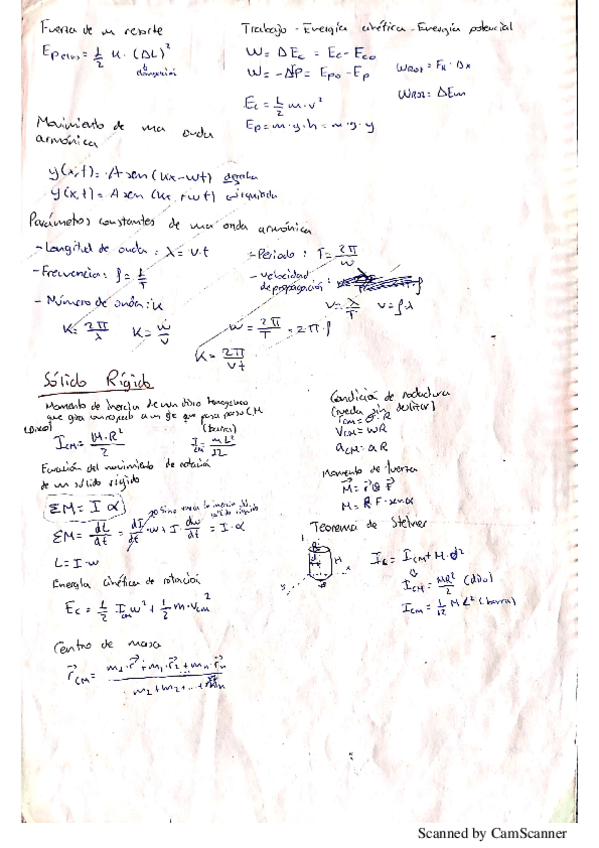 Fuerza de un resorte
E_Pelas = 1/2 K · (ΔL)²
Trabajo - Energía cinética - Energía potencial
W = ΔEc = Ec - Eco
W = -ΔP = Epo - Ep
Ec = 1/2 m · v²
Ep = m · g · h = m · g · y
W_ROZ = F_R · Δx
W_ROZ = ΔEm
Movimiento de una onda
armónica
y(x,t) = A sen (kx - wt) derecha
y(x,t) = A sen (kx + wt) izquierda
Parámetros constantes de una onda armónica
- Longitud de onda: λ = v · t
- Frecuencia: f = 1/T
- Número de onda: K
K = 2π/λ K = w/v
- Periodo: T = 2π/w
- Velocidad
de propagación:
v = λ/T v = f · λ
w = 2π/T = 2π · f
K = 2π/vt
Sólido Rígido
Momento de inercia de un disco homogéneo
que gira con respecto a un eje que pasa por su CM
(Disco) I_CM = M · R²/2
(barra) I_CM = mL²/12
Ecuación del movimiento de rotación
de un sólido rígido
ΣM = I α
ΣM = dL/dt = dI/dt · w + I · dw/dt = I · α
L = I · w
Energía cinética de rotación
Ec = 1/2 I_CM w² + 1/2 m · v_CM²
Centro de masa
r_CM = m₁ · r + m₁ · r₂ + m_n · r_n / m₁ + m₂ + ... + m_n
Condición de rodadura
(rueda sin deslizar)
V_CM = wR
a_CM = αR
Momento de fuerza
M = r ⊗ F
M = R F · sen α
Teorema de Steiner
I_R = I_CM + M · d²
I_CM = MR²/2 (disco)
I_CM = 1/12 M L² (barra)
Scanned by CamScanner